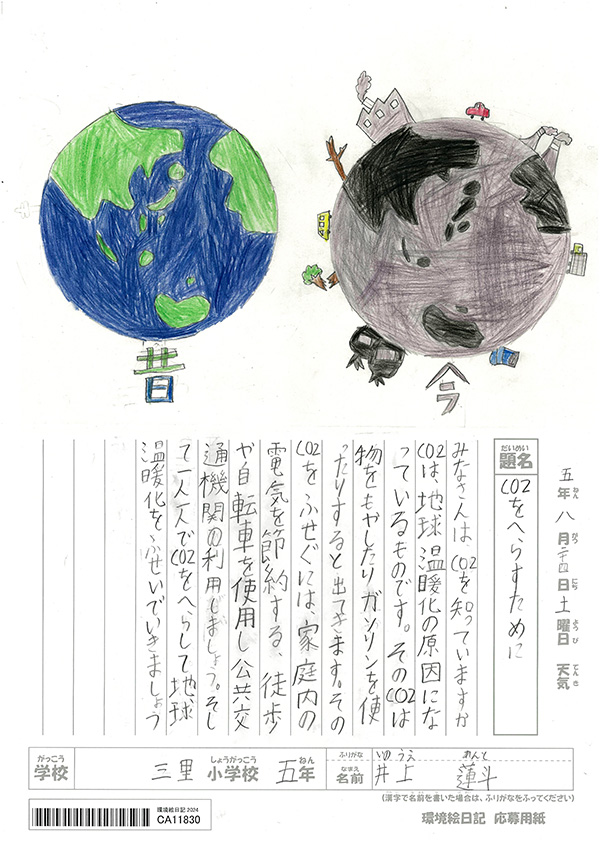 昔
今
五年 八月二十四日 土曜日 天気
ねん がつ にち ようび てんき
だいめい
題名
CO2をへらすために
みなさんは、CO2を知っていますか
CO2は、地球温暖化の原因にな
っているものです。そのCO2は
物をもやしたりガソリンを使
ったりすると出てきます。その
CO2をふせぐには、家庭内の
電気を節約する、徒歩
や自転車を使用し公共交
通機関の利用しましょう。そし
て一人一人でCO2をへらして地球
温暖化をふせいでいきましょう
がっこう しょうがっこう ねん
学校 三里 小学校 五年
ふりがな いの うえ れんと
なまえ
名前 井上 蓮斗
(漢字で名前を書いた場合は、ふりがなをふってください)
環境絵日記 2024
CA11830
環境絵日記 応募用紙